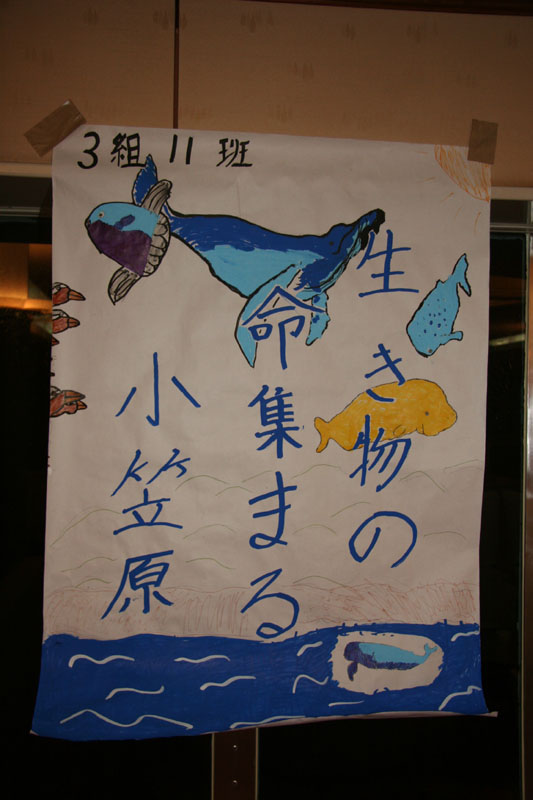 3組 11 班
生き物の
命集まる
小笠原